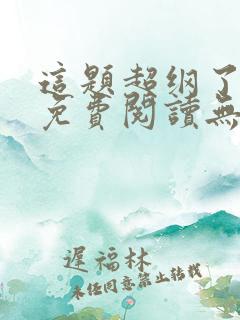 這題超綱了
免費閱讀無
遲福林
未经同意禁止转载